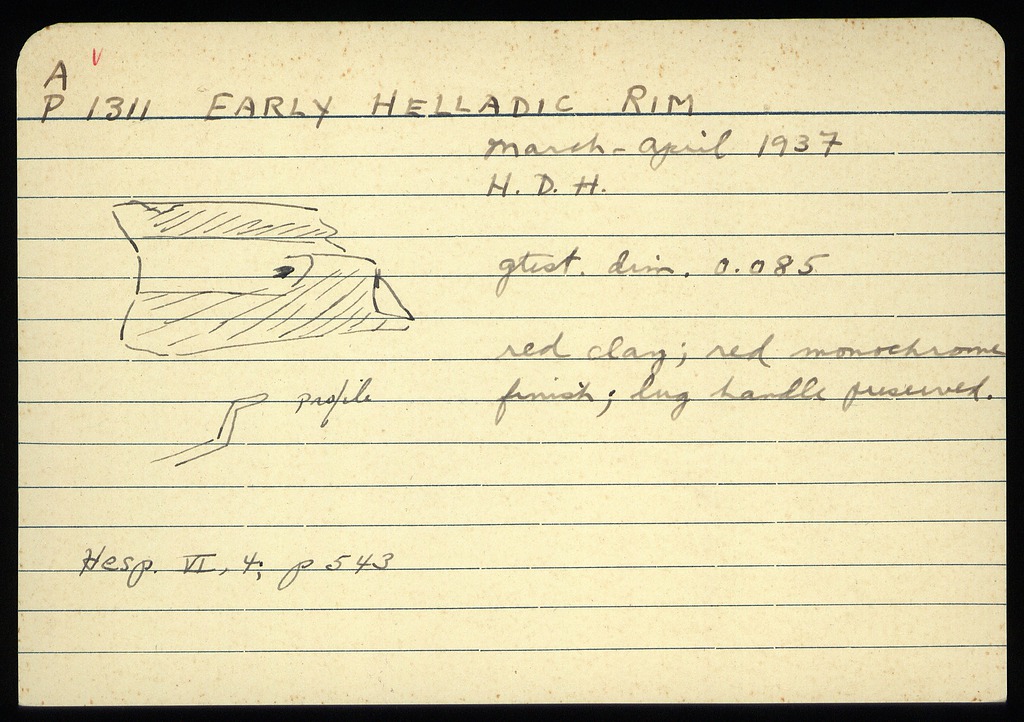 A
P 1311 EARLY HELLADIC RIM
March - April 1937
H. D. H.
gtest. dim. 0.085
red clay; red monochrome
finish; lug handle preserved.
profile
Hesp. VI, 4; p 543